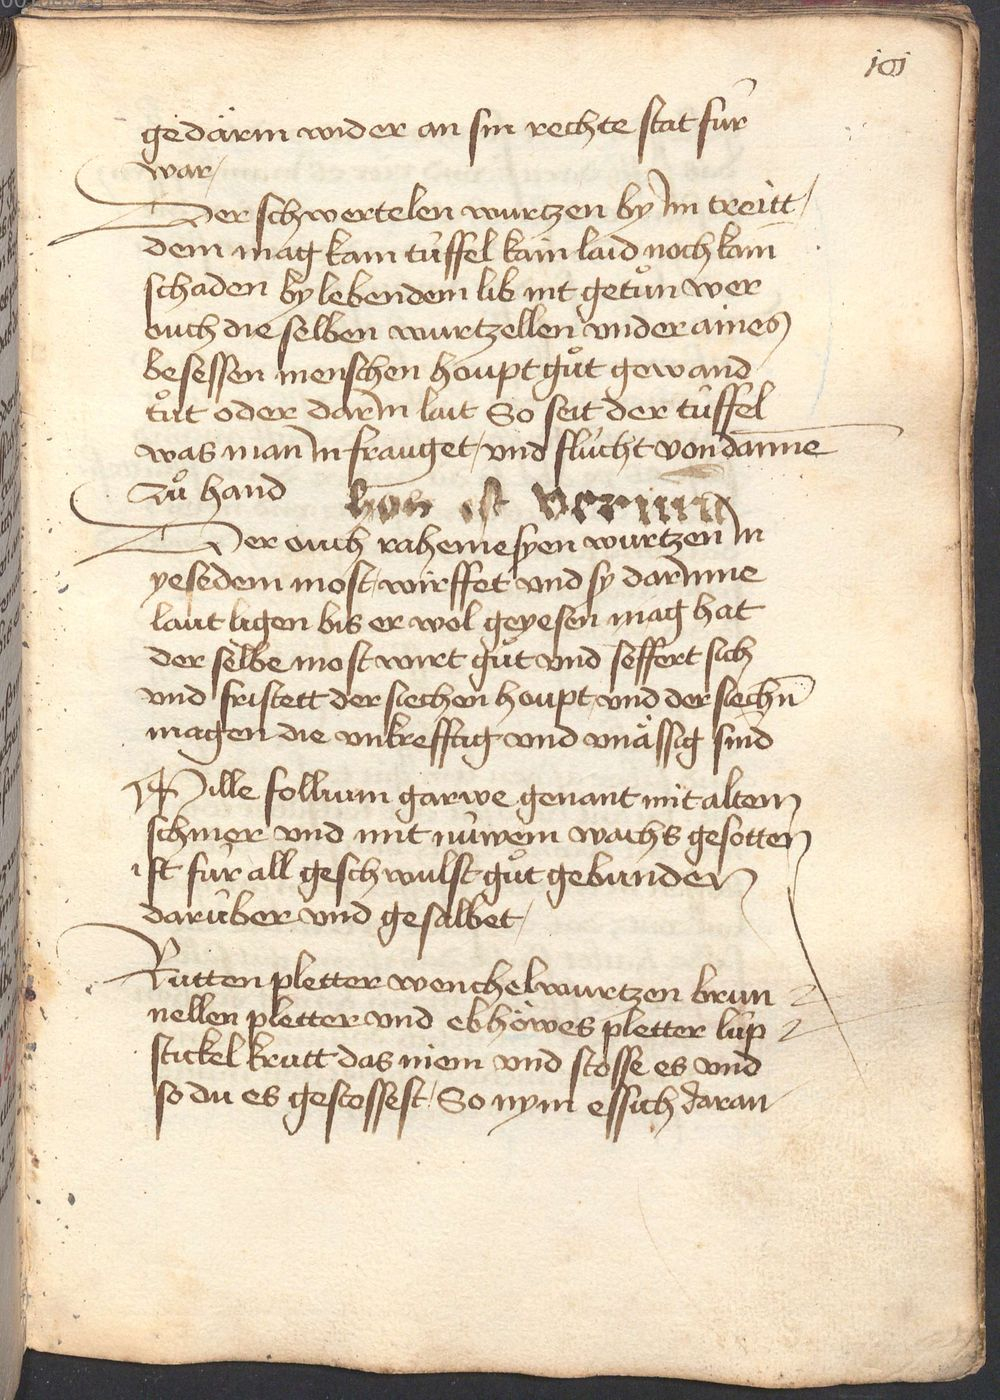 101
gedärm wider an sin rechte stat für
war /
Der schwertelen wurtzen by im treitt /
dem mag kain tüffel kain laid noch kain
schaden by lebendem lib nit getůn wer
ouch die selben wurtzellen vnder aines
besessen menschen houpt gůt gewand
tůt oder darin lait So seit der tüffel
was man in frauget / vnd flücht von danne
Zů hand
Der ouch rahemespen wurtzen in
yesedem most wirffet vnd sy darinne
laut ligen bis er wol geyesen mag hat
der selbe most wirt gůt vnd seffert sich
vnd fristett der siechen houpt / vnd der siechn̄
magen die vnkrefftig vnd vnässig sind
Mille follium garwe genant mit altem
schmer vnd mit nüwem wachs gesotten
ist für all geschwulst gůt gebunden
darüber vnd gesalbet /
Rutten pletter wenchelwurtzen brun
nellen pletter vnd ebhöwes pletter lüp
stickel krutt das niem vnd stosse es vnd
so du es gestossest / So nym essich daran